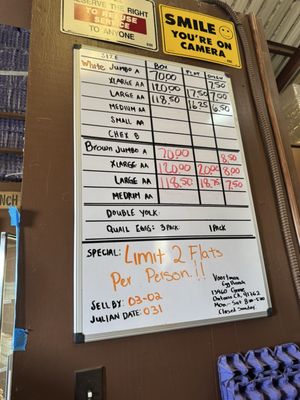 RESERVE THE RIGHT
TO REFUSE
SERVICE
TO ANYONE
SMILE
YOU'RE ON
CAMERA
SIZE BOX FLAT DOZEN
White Jumbo A 70.00 7.50
XLARGE AA 120.00 17.50 7.00
LARGE AA 118.50 16.25 6.50
MEDIUM AA
SMALL AA
CHEX B
Brown Jumbo A 70.00 8.50
XLARGE AA 120.00 20.00 8.00
LARGE AA 118.50 18.75 7.50
MEDIUM AA
DOUBLE YOLK
QUAIL EGGS: 3 PACK 1 PACK
SPECIAL: Limit 2 Flats
Per Person!!!
SELL BY: 03-02
JULIAN DATE: 031
Voortman
Egg Ranch
13960 Grove
Ontario CA. 91762
Mon - Sat 8:00-5:00
Closed Sunday